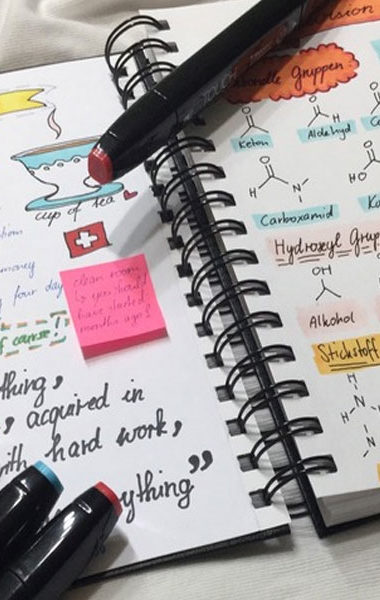 cup of tea
money
four day
of course!
clean room
↳ you should
have started
months ago!
thing,
, acquired in
with hard work,
ything”
Gruppen:
Keton
Aldehyd
O
O
H
O
H
N
O
HO
Carboxamid
Hydroxyl Grup
OH
Alkohol
Stickstoff
H
N
H
N
N